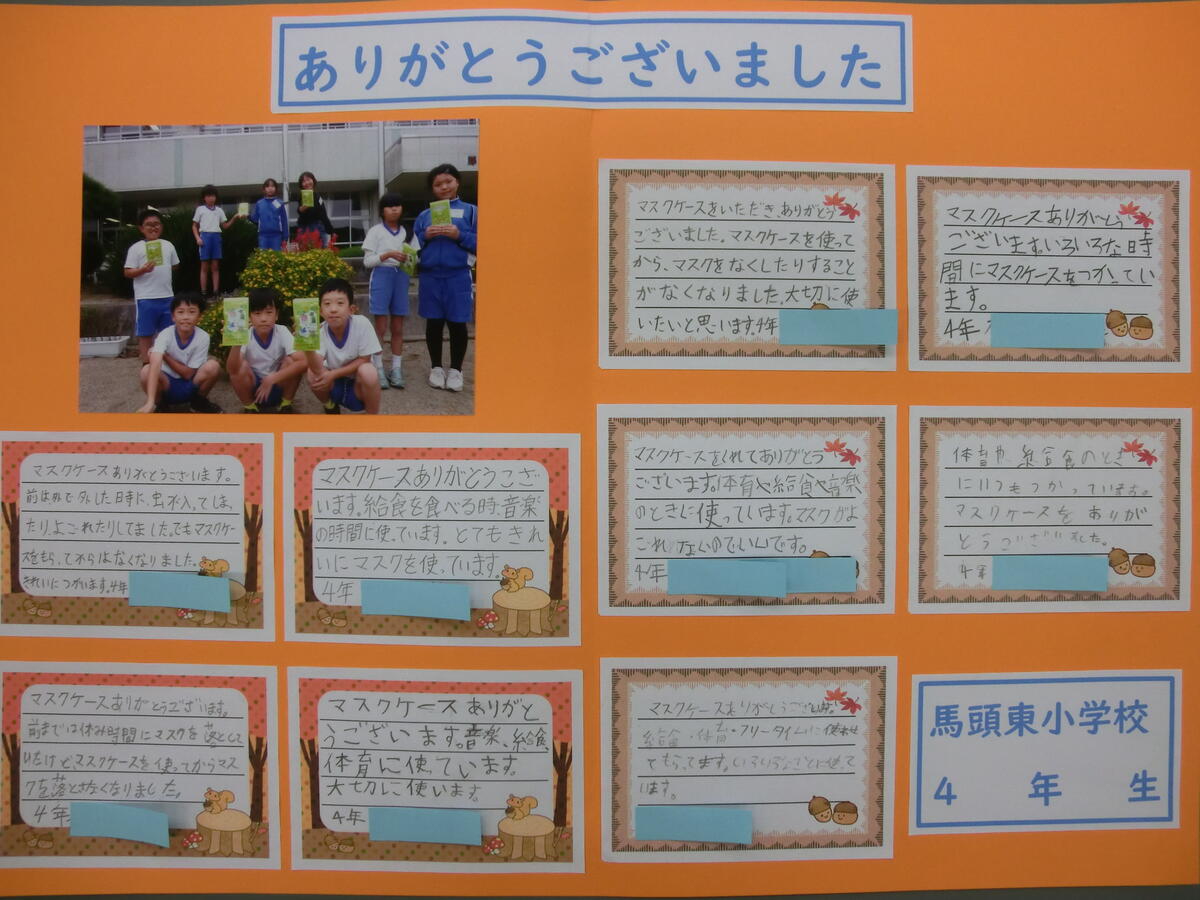 ありがとうございました
マスクケースをいただき、ありがとう
ございました。マスクケースを使って
から、マスクをなくしたりすること
がなくなりました。大切に使
いたいと思います。4年
マスクケースありがとう
ございます。いろいろな時
間にマスクケースをつかってい
ます。
4年
マスクケースありがとうございます。
前は外で外した日時に、虫が入ってしまっ
たり、よごれたりしてました。でもマスクケー
スをもらってからはなくなりました。
きれいにつかいます。4年
マスクケースありがとうござ
います。給食を食べる時、音楽
の時間に使っています。とてもきれ
いにマスクを使っています。
4年
マスクケースをくれてありがとう
ございます。体育や給食や音楽
のときに使っています。マスクがよ
ごれないのでいいです。
4年
体育や、給食のとき
にいつもつかっています。
マスクケースをありが
とうございました。
4年
マスクケースありがとうございます。
前までは休み時間にマスクを落として
いたけど、マスクケースを使ってからマス
クを落とさなくなりました。
4年
マスクケースありがと
うございます。音楽、給食、
体育に使っています。
大切に使います。
4年
マスクケースありがとうございます
給食・体育・フリータイムに使わせ
てもらってます。いろいろなことに使って
います。
馬頭東小学校
4年生